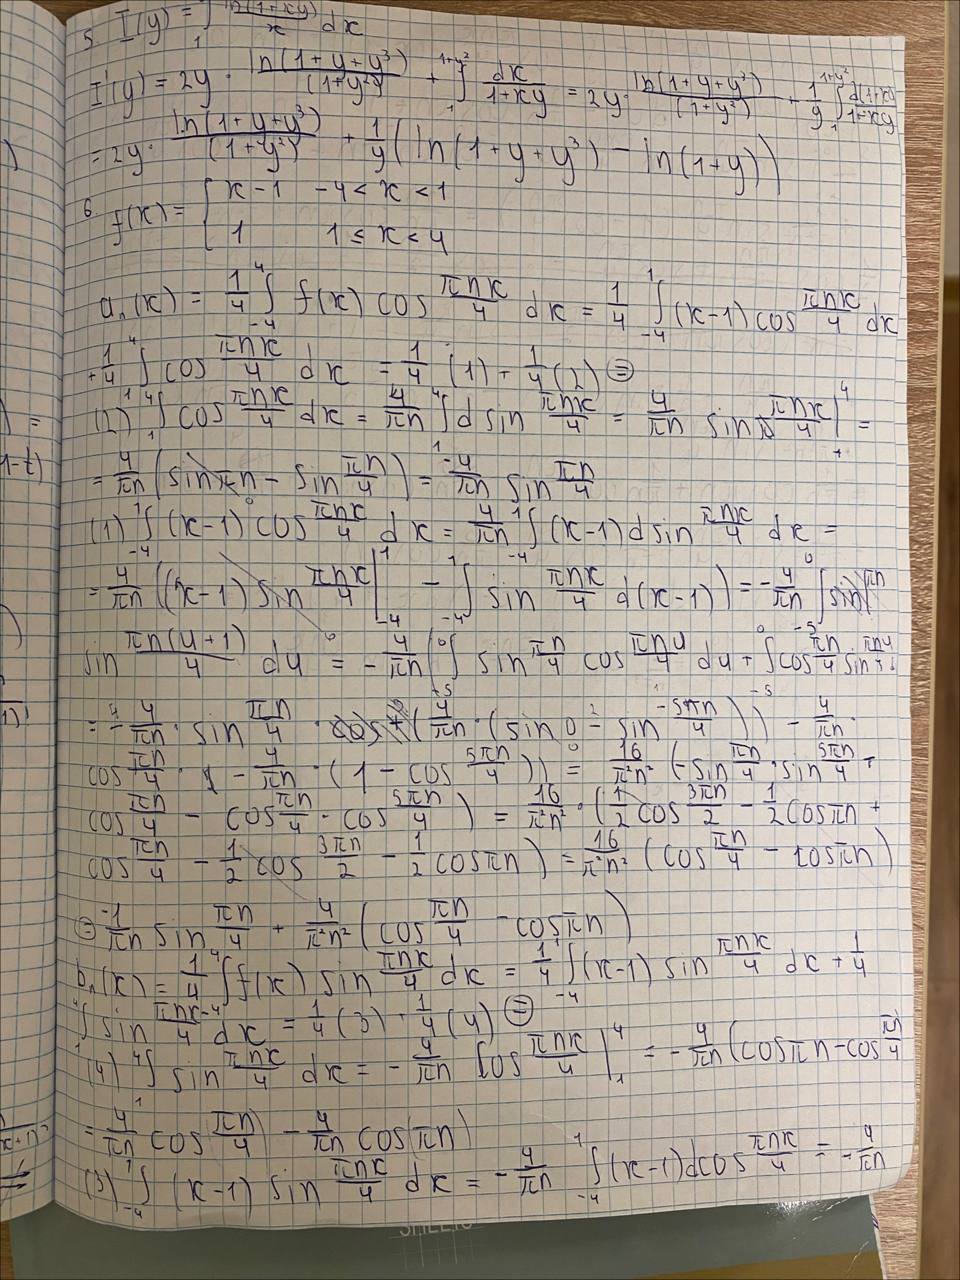 5. I(y) = ∫ ln(1+xy)/x dx
I'(y) = 2y · ln(1+y+y³)/(1+y²) + ∫₁^{1+y²} dx/(1+xy) = 2y · ln(1+y+y³)/(1+y²) + 1/y ∫₁^{1+y²} d(1+xy)/(1+xy)
= 2y · ln(1+y+y³)/(1+y²) + 1/y (ln(1+y+y³) - ln(1+y))
6. f(x) = { x-1   -4 < x < 1
1   1 ≤ x < 4
aₙ(x) = 1/4 ∫₋₄⁴ f(x) cos πnx/4 dx = 1/4 ∫₋₄¹ (x-1) cos πnx/4 dx
+ 1/4 ∫₁⁴ cos πnx/4 dx = 1/4 (1) + 1/4 (2) ⊜
(2) ∫₁⁴ cos πnx/4 dx = 4/πn ∫₁⁴ d sin πnx/4 = 4/πn sin πnx/4 |₁⁴ =
= 4/πn (sin πn - sin πn/4) = -4/πn sin πn/4
(1) ∫₋₄¹ (x-1) cos πnx/4 dx = 4/πn ∫₋₄¹ (x-1) d sin πnx/4 dx =
= 4/πn ((x-1) sin πnx/4 |₋₄¹ - ∫₋₄¹ sin πnx/4 d(x-1)) = -4/πn ∫₋₅⁰
sin πn(u+1)/4 du = -4/πn (∫₋₅⁰ sin πn/4 cos πnu/4 du + ∫₋₅⁰ cos πn/4 sin πnu/4
= -4/πn · sin πn/4 · (4/πn · (sin 0 - sin -5πn/4)) - 4/πn ·
cos πn/4 · 1 - 4/πn · (1 - cos 5πn/4)) = 16/π²n² (-sin πn/4 · sin 5πn/4 +
cos πn/4 - cos πn/4 · cos 5πn/4) = 16/π²n² · (1/2 cos 3πn/2 - 1/2 cos πn +
cos πn/4 - 1/2 cos 3πn/2 - 1/2 cos πn) = 16/π²n² (cos πn/4 - cos πn)
⊜ -1/πn sin πn/4 + 4/π²n² (cos πn/4 - cos πn)
bₙ(x) = 1/4 ∫₋₄⁴ f(x) sin πnx/4 dx = 1/4 ∫₋₄¹ (x-1) sin πnx/4 dx + 1/4
∫₁⁴ sin πnx/4 dx = 1/4 (3) + 1/4 (4) ⊜
(4) ∫₁⁴ sin πnx/4 dx = -4/πn cos πnx/4 |₁⁴ = -4/πn (cos πn - cos πn/4
= 4/πn cos πn/4 - 4/πn cos(πn)
(3) ∫₋₄¹ (x-1) sin πnx/4 dx = -4/πn ∫₋₄¹ (x-1) d cos πnx/4 = -4/πn